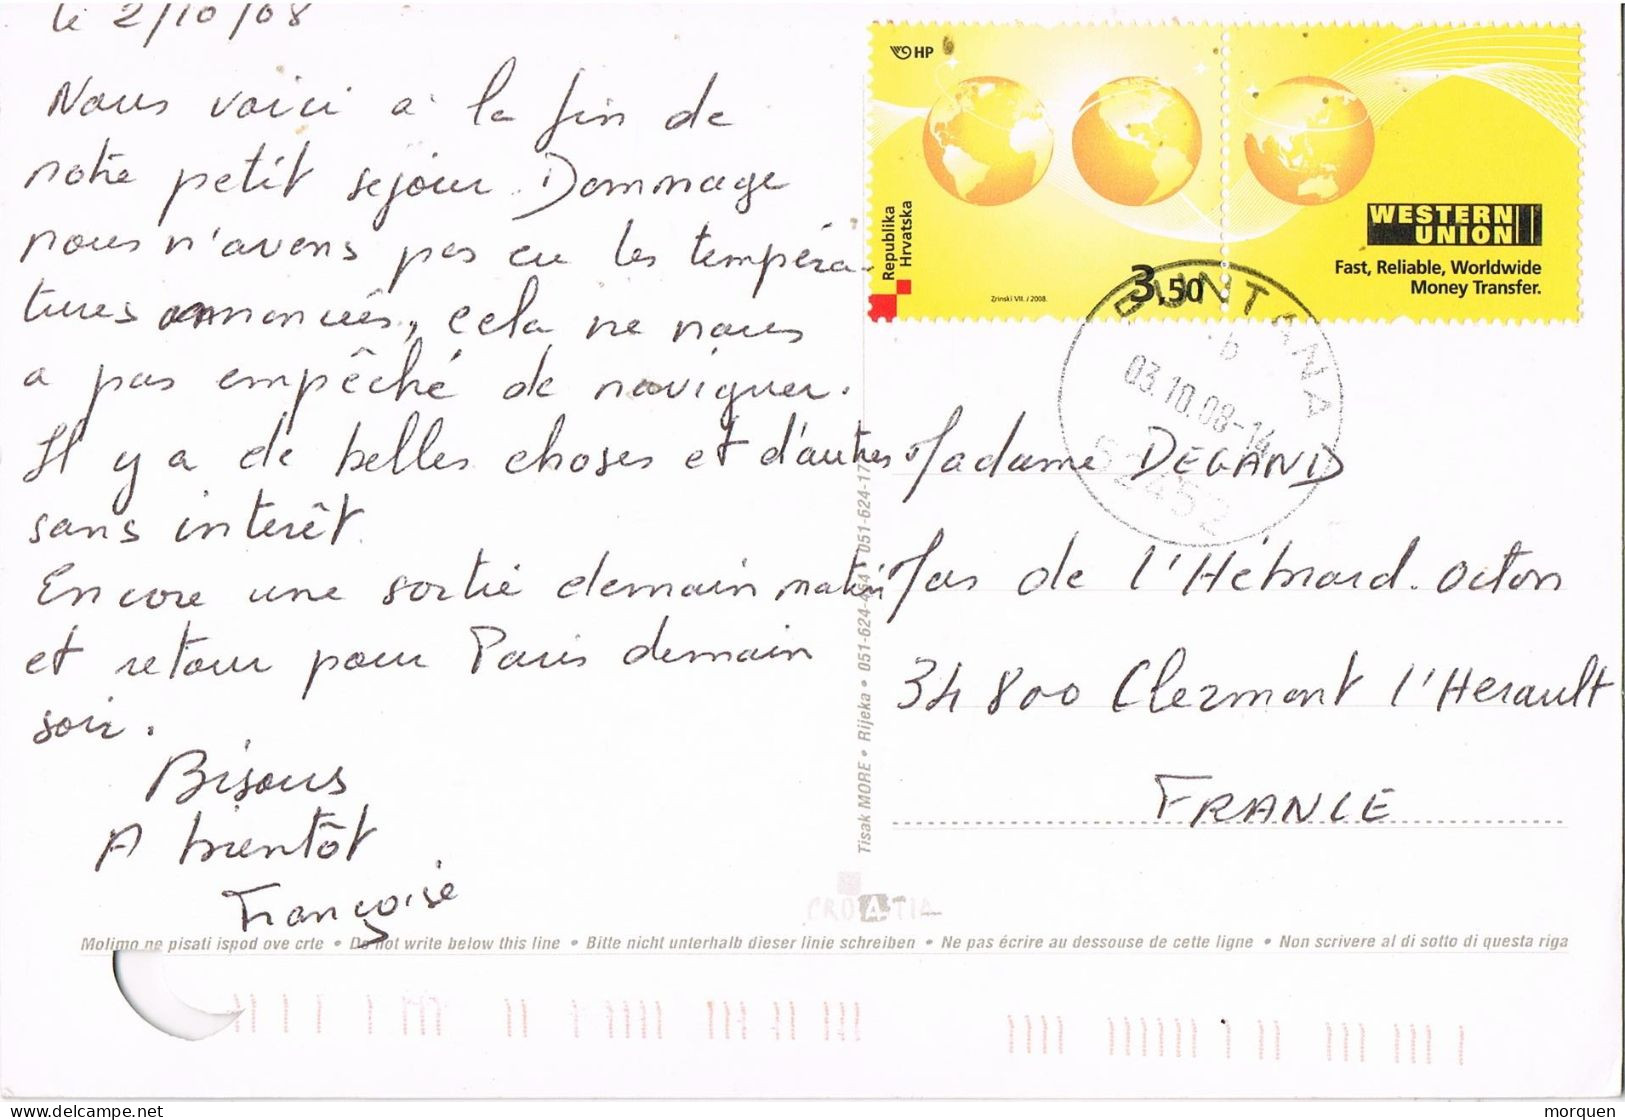 le 2/10/08
Nous voici à la fin de
notre petit sejour. Dommage
nous n'avons pas eu les tempéra-
tures annoncées, cela ne nous
a pas empêché de naviguer.
Il y a de belles choses et d'autres
sans interêt.
Encore une sortie demain matin
et retour pour Paris demain
soir.
Bisous
A bientôt
Françoise
HP
Republika
Hrvatska
Zrinski VII. / 2008.
3,50
WESTERN
UNION
Fast, Reliable, Worldwide
Money Transfer.
b
03.10.08-14
52452
Madame DEGAND
Mas de l'Hébrard. Octon
34 800 Clermont l'Herault
FRANCE
Tisak MORE • Rijeka • 051-624-464 051-624-17
CROATIA
Molimo ne pisati ispod ove crte • Do not write below this line • Bitte nicht unterhalb dieser linie schreiben • Ne pas écrire au dessouse de cette ligne • Non scrivere al di sotto di questa riga
delcampe.net
morquen